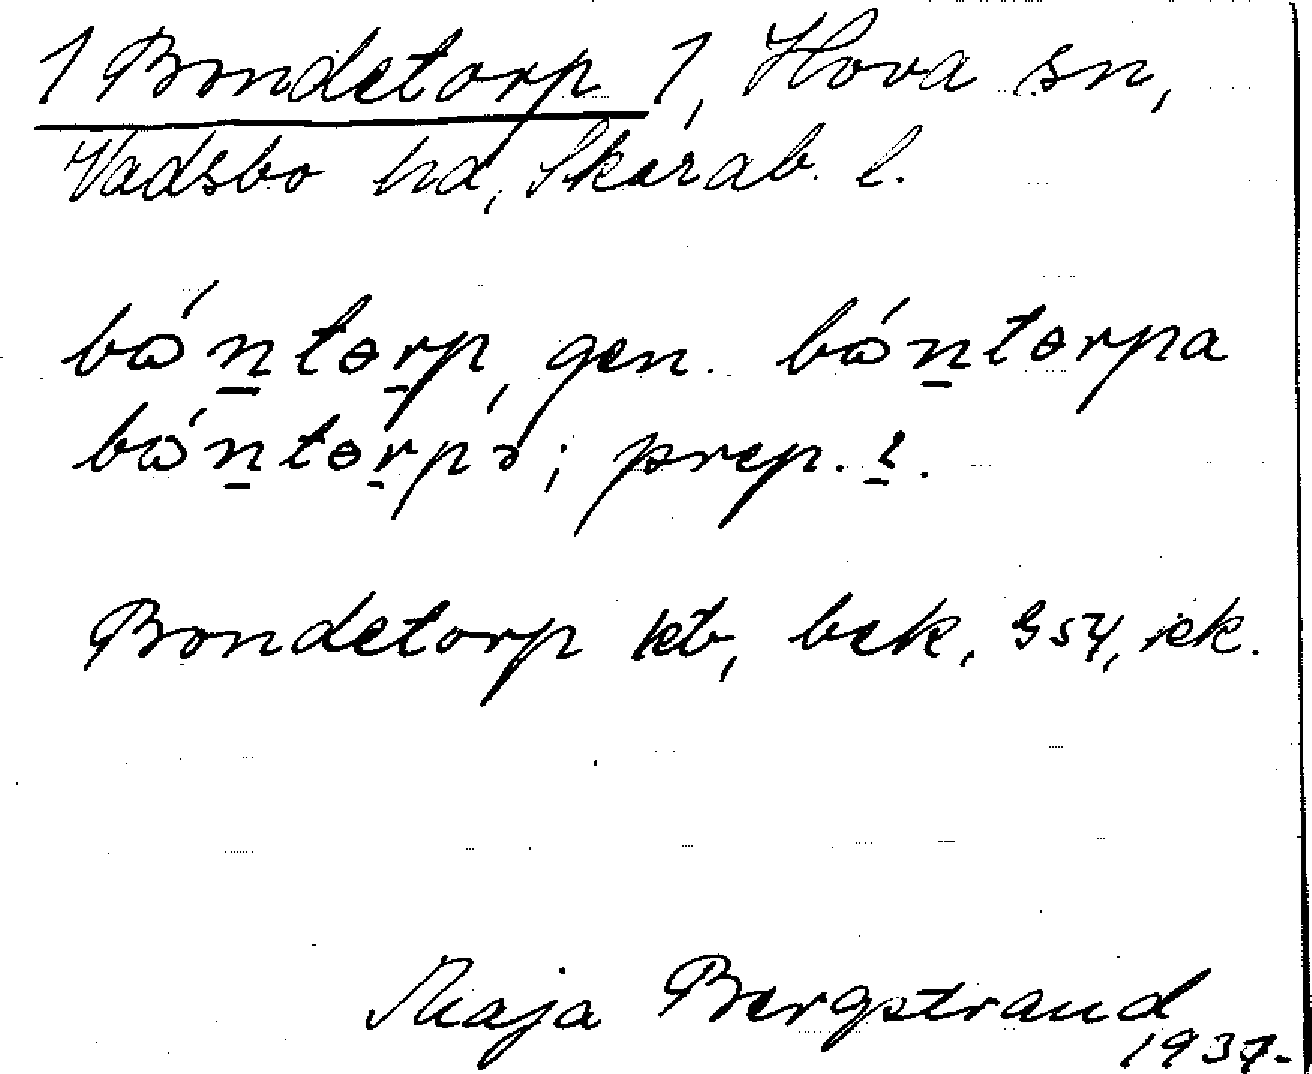 1 Bondetorp 1, Hova sn,
Vadsbo hd, Skarab. l.
bón̲tɵr̲p, gen. bón̲tɵrpa
bón̲tɵr̲ps; prep. i̲.
Bondetorp kb, bek, G54, ek.
Maja Bergstrand
1937.